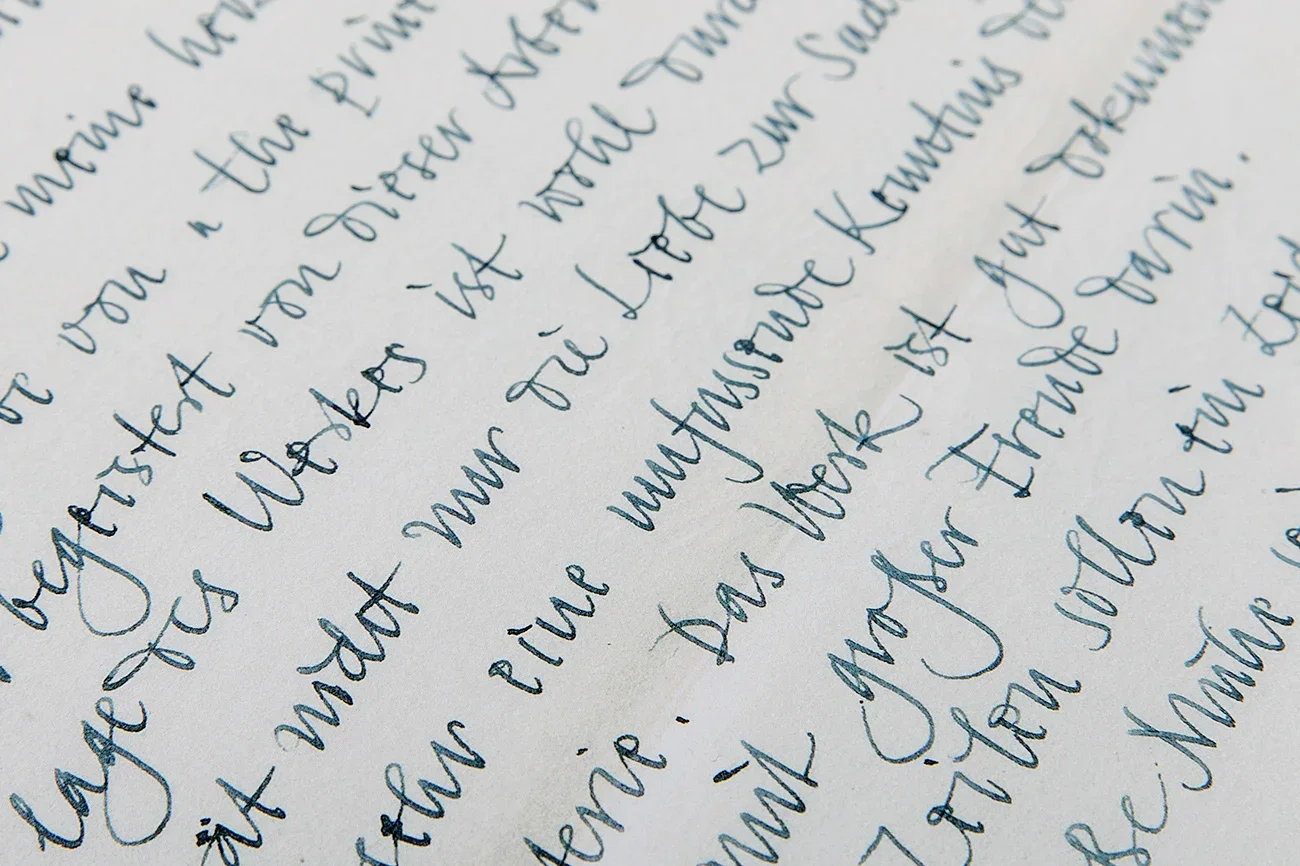 meine
von "the Prin
begeistert von dieser Arbei
lage des Werkes ist wohl dur
nicht nur die Liebe zur Sach
sehr eine umfassende Kenntnis de
terie. Das Werk ist gut dokumen
mit großer Freude darin.
Zeilen sollen ein Zei
ße Mühe